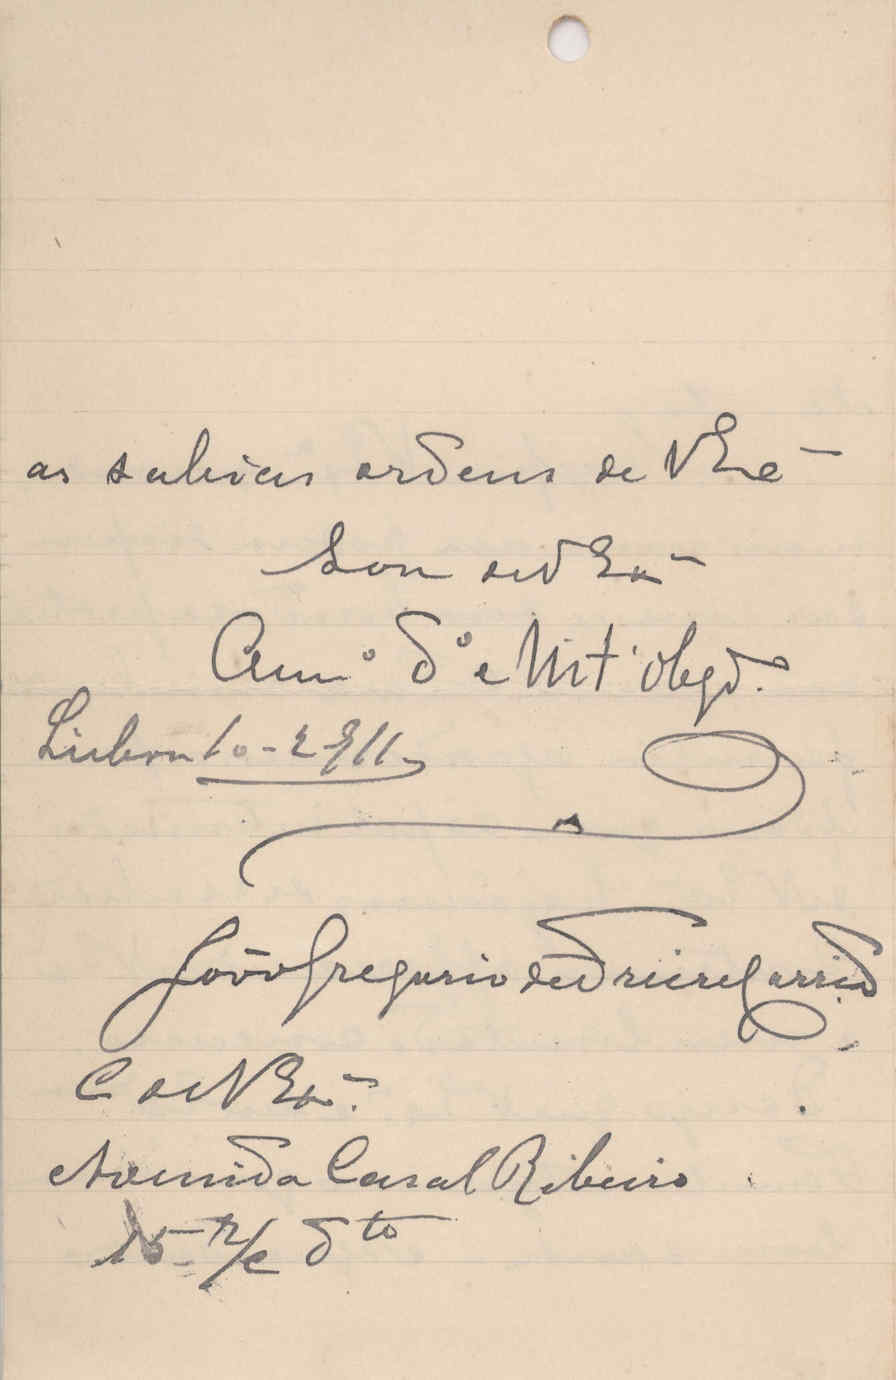 as sabias ordens de V Exª
Sou de V Exª
Amº dº e Mtº obgdº
Lisboa 10-2-911
João Gregorio de Garrido
C de V Exª
Avenida Casal Ribeiro
15 - r/c dto